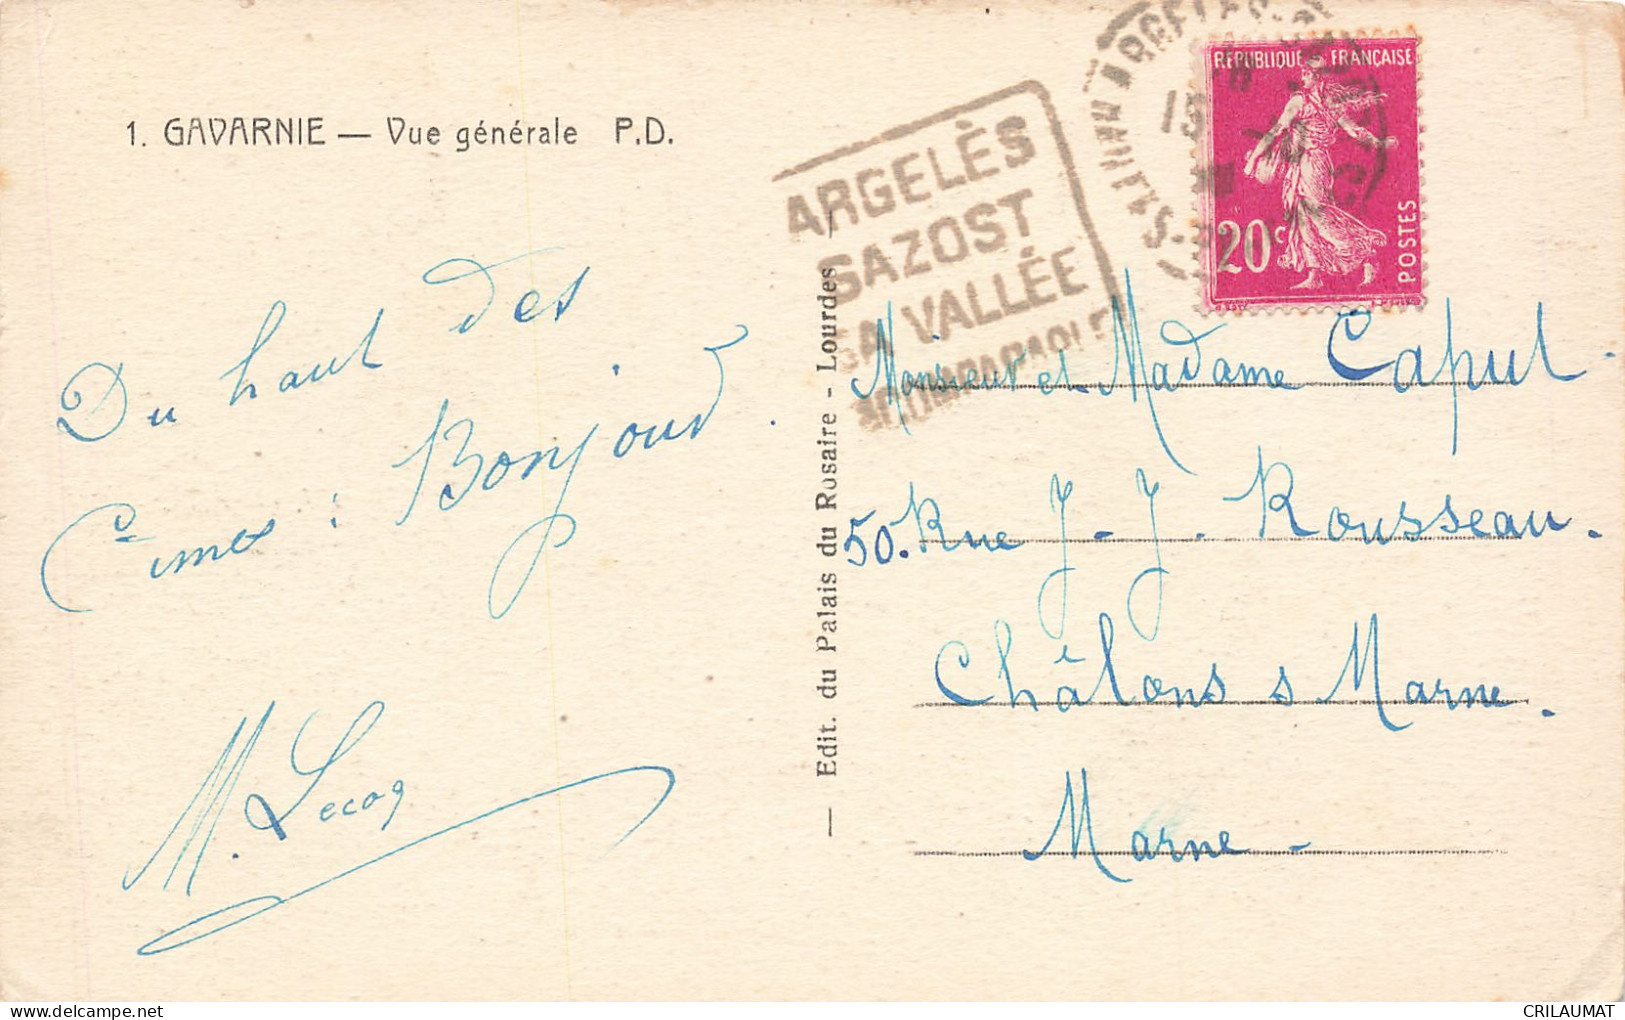 1. GAVARNIE — Vue générale P.D.
Du haut des
Cimes : Bonjour.
M. Lecoq
— Edit. du Palais du Rosaire - Lourdes
ARGELÈS
GAZOST
SA VALLÉE
RÉPUBLIQUE FRANÇAISE
20c
POSTES
Monsieur et Madame Caput
50. Rue J-J. Rousseau.
Châlons s Marne.
Marne -
CRILAUMAT